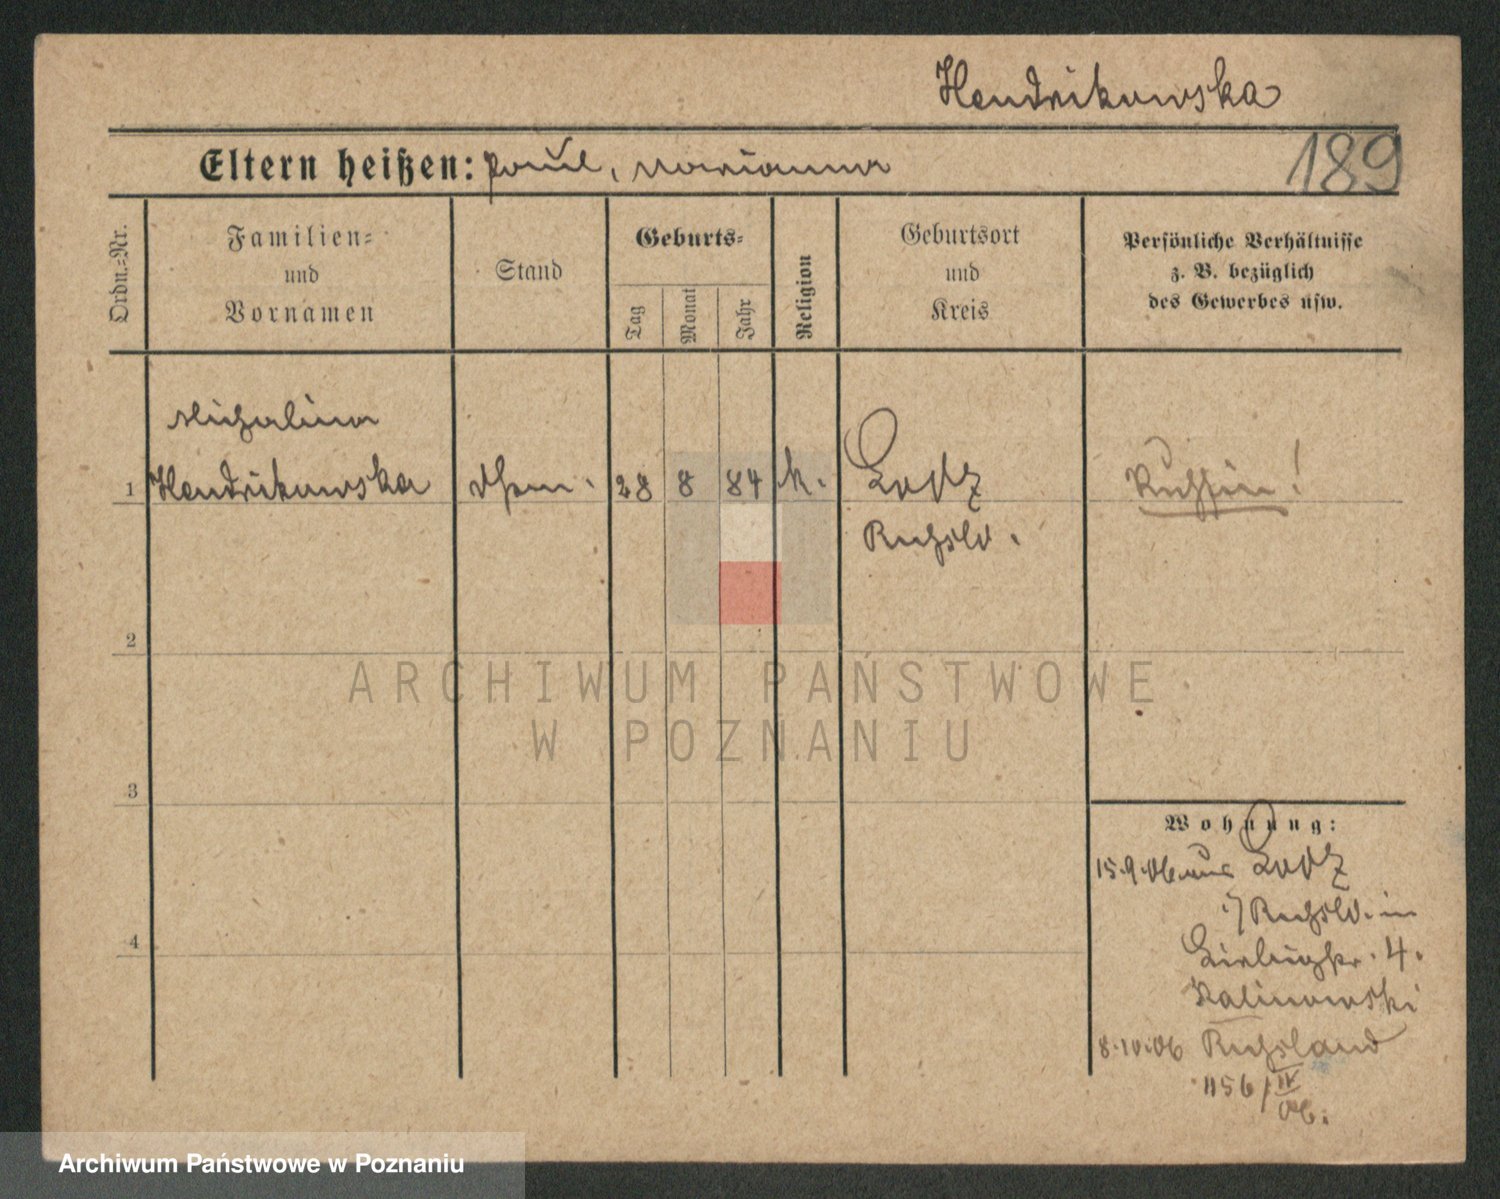 Hendrikowska
Eltern heißen: Paul, Marianna
189
Ordn.-Nr.
Familien-
und
Vornamen
Stand
Geburts-
Tag
Monat
Jahr
Religion
Geburtsort
und
Kreis
Persönliche Verhältnisse
z. B. bezüglich
des Gewerbes usw.
Michalina
1 Hendrikowska 28 8 84 k. Lodz Russin!
Russld.
2
3
4
Wohnung:
15.9.06 aus Lodz
i/ Russld. in
4.
Kalinowski
8.10.06 Russland
456/IV
06.
ARCHIWUM PAŃSTWOWE
W POZNANIU
Archiwum Państwowe w Poznaniu